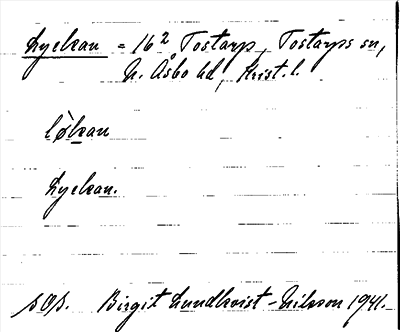 Lyckan = 16² Tostarp, Tostarps sn,
N. Åsbo hd, Krist. l.
lø̀kan
Lyckan.
sOp. Birgit Lundkvist-Nilsson 1941.